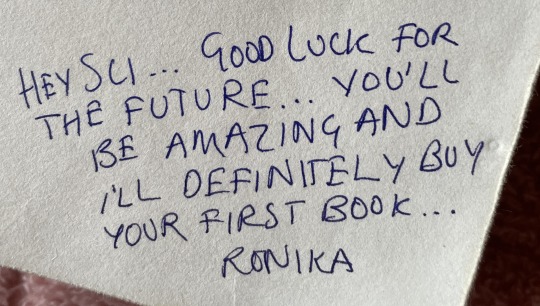 HEY SCI... GOOD LUCK FOR
THE FUTURE... YOU'LL
BE AMAZING AND
I'LL DEFINITELY BUY
YOUR FIRST BOOK...
RONIKA